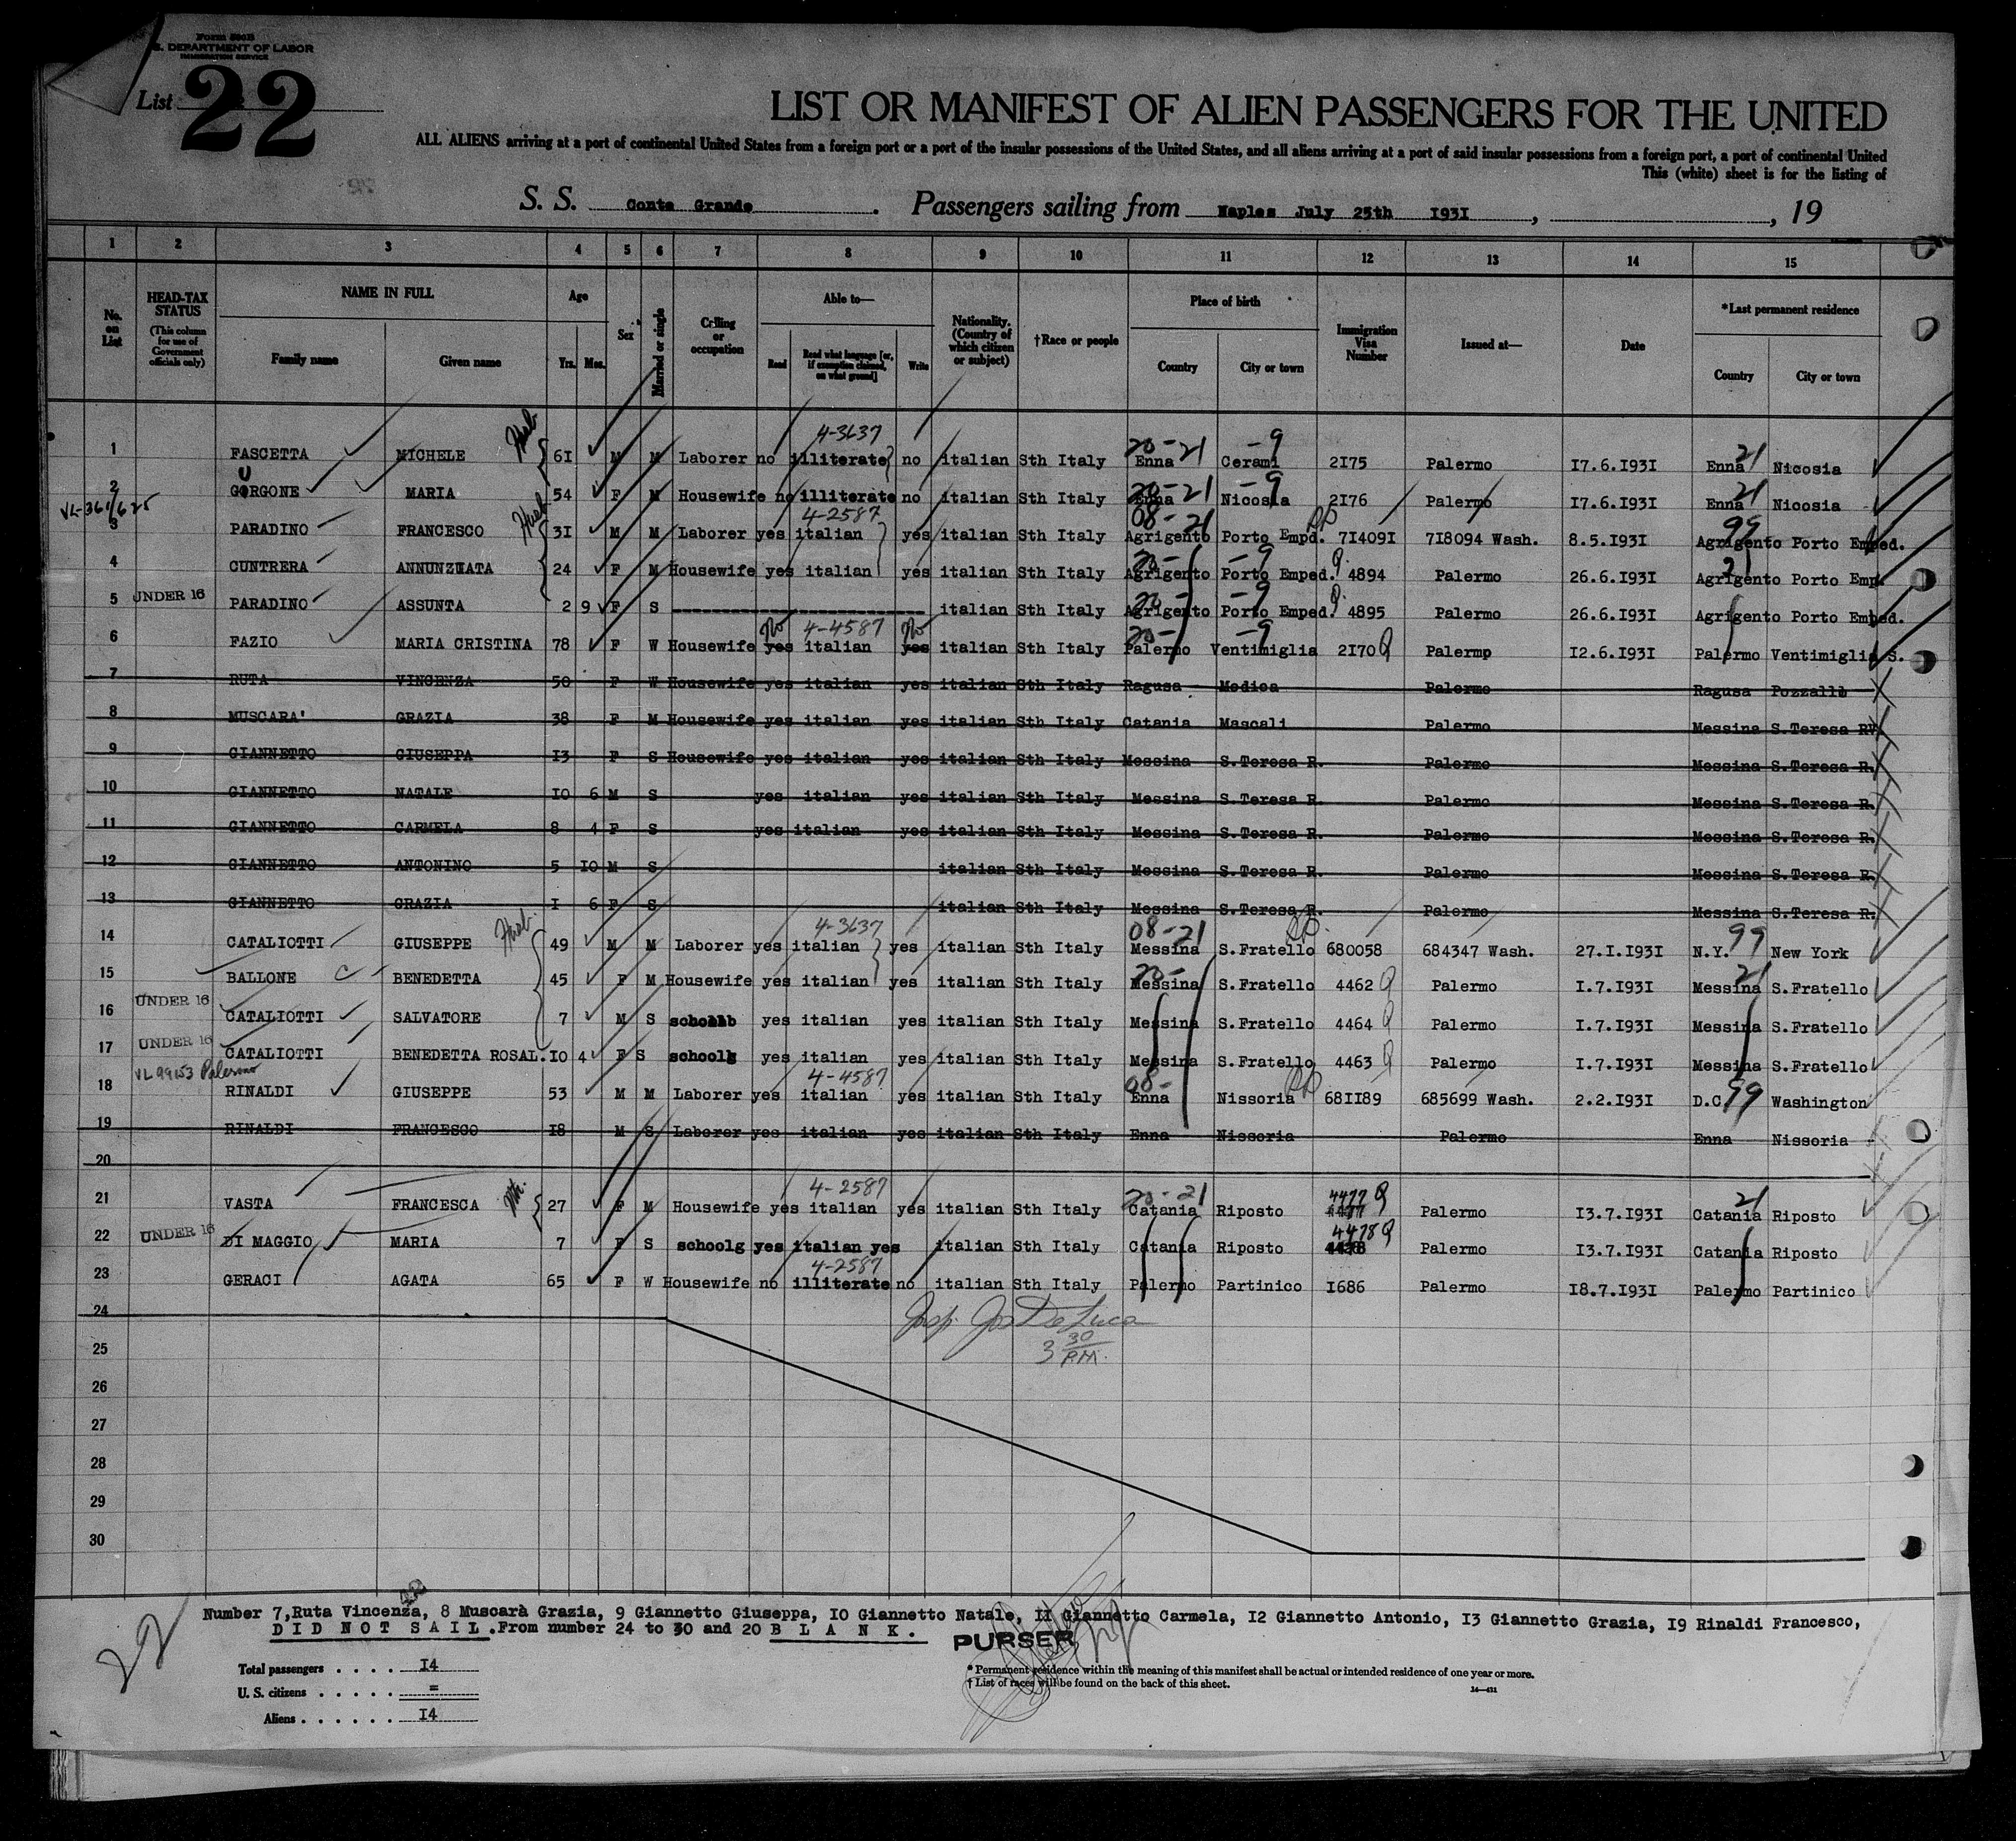 Form 500B
U. S. DEPARTMENT OF LABOR
IMMIGRATION SERVICE
List 22
LIST OR MANIFEST OF ALIEN PASSENGERS FOR THE UNITED
ALL ALIENS arriving at a port of continental United States from a foreign port or a port of the insular possessions of the United States, and all aliens arriving at a port of said insular possessions from a foreign port, a port of continental United
This (white) sheet is for the listing of
S. S. Conte Grande. Passengers sailing from Naples July 25th 1931, , 19
1 2 3 4 5 6 7 8 9 10 11 12 13 14 15
No. on List
HEAD-TAX STATUS (This column for use of Government officials only)
NAME IN FULL
Family name Given name
Age
Yrs. Mos.
Sex
Married or single
Calling or occupation
Able to—
Read Read what language [or, if exemption claimed, on what ground] Write
Nationality. (Country of which citizen or subject)
†Race or people
Place of birth
Country City or town
Immigration Visa Number
Issued at—
Date
*Last permanent residence
Country City or town
Husb. 4-3637 20-21 -9 21
1 FASCETTA MICHELE 61 M M Laborer no illiterate no italian Sth Italy Enna Cerami 2175 Palermo 17.6.1931 Enna Nicosia
U 20-21 -9 21
2 GORGONE MARIA 54 F M Housewife no illiterate no italian Sth Italy Enna Nicosia 2176 Palermo 17.6.1931 Enna Nicosia
VL-361/625 Husb. 4-2587 08-21 RP 99
3 PARADINO FRANCESCO 31 M M Laborer yes italian yes italian Sth Italy Agrigento Porto Empd. 714091 718094 Wash. 8.5.1931 Agrigento Porto Emped.
20- -9 Q 21
4 CUNTRERA ANNUNZIATA 24 F M Housewife yes italian yes italian Sth Italy Agrigento Porto Emped. 4894 Palermo 26.6.1931 Agrigento Porto Emp.
20- -9 Q
5 UNDER 16 PARADINO ASSUNTA 2 9 F S italian Sth Italy Agrigento Porto Emped. 4895 Palermo 26.6.1931 Agrigento Porto Emped.
no 4-4587 no 20- -9
6 FAZIO MARIA CRISTINA 78 F W Housewife yes italian yes italian Sth Italy Palermo Ventimiglia 2170 Q Palermp 12.6.1931 Palermo Ventimiglia S.
7 RUTA VINCENZA 50 F W Housewife yes italian yes italian Sth Italy Ragusa Modica Palermo Ragusa Pozzallo
8 MUSCARA' GRAZIA 38 F M Housewife yes italian yes italian Sth Italy Catania Mascali Palermo Messina S.Teresa RV
9 GIANNETTO GIUSEPPA 13 F S Housewife yes italian yes italian Sth Italy Messina S.Teresa R. Palermo Messina S.Teresa R.
10 GIANNETTO NATALE 10 6 M S yes italian yes italian Sth Italy Messina S.Teresa R. Palermo Messina S.Teresa R.
11 GIANNETTO CARMELA 8 4 F S yes italian yes italian Sth Italy Messina S.Teresa R. Palermo Messina S.Teresa R.
12 GIANNETTO ANTONINO 5 10 M S italian Sth Italy Messina S.Teresa R. Palermo Messina S.Teresa R.
13 GIANNETTO GRAZIA 1 6 F S italian Sth Italy Messina S.Teresa R. Palermo Messina S.Teresa R.
Husb. 4-3637 08-21 RP 99
14 CATALIOTTI GIUSEPPE 49 M M Laborer yes italian yes italian Sth Italy Messina S.Fratello 680058 684347 Wash. 27.1.1931 N.Y. New York
20- 21
15 BALLONE BENEDETTA 45 F M Housewife yes italian yes italian Sth Italy Messina S.Fratello 4462 Q Palermo 1.7.1931 Messina S.Fratello
16 UNDER 16 CATALIOTTI SALVATORE 7 M S schoolb yes italian yes italian Sth Italy Messina S.Fratello 4464 Q Palermo 1.7.1931 Messina S.Fratello
17 UNDER 16 CATALIOTTI BENEDETTA ROSAL. 10 4 F S schoolg yes italian yes italian Sth Italy Messina S.Fratello 4463 Q Palermo 1.7.1931 Messina S.Fratello
Palermo 4-4587 08- RP 99
18 RINALDI GIUSEPPE 53 M M Laborer yes italian yes italian Sth Italy Enna Nissoria 681189 685699 Wash. 2.2.1931 D.C. Washington
19 RINALDI FRANCESCO 18 M S Laborer yes italian yes italian Sth Italy Enna Nissoria Palermo Enna Nissoria
20
4-2587 20-21 4477 Q 21
21 VASTA FRANCESCA 27 F M Housewife yes italian yes italian Sth Italy Catania Riposto Palermo 13.7.1931 Catania Riposto
4478 Q
22 UNDER 16 DI MAGGIO MARIA 7 F S schoolg yes italian yes italian Sth Italy Catania Riposto Palermo 13.7.1931 Catania Riposto
4-2587
23 GERACI AGATA 65 F W Housewife no illiterate no italian Sth Italy Palermo Partinico 1686 Palermo 18.7.1931 Palermo Partinico
24
Insp. Jos De Luca
3 30 P.M.
25
26
27
28
29
30
Number 7,Ruta Vincenza, 8 Muscarà Grazia, 9 Giannetto Giuseppa, 10 Giannetto Natale, 11 Giannetto Carmela, 12 Giannetto Antonio, 13 Giannetto Grazia, 19 Rinaldi Francesco,
DID NOT SAIL.From number 24 to 30 and 20 BLANK.
PURSER
22
Total passengers . . . . 14
U. S. citizens . . . . . =
Aliens . . . . . . 14
* Permanent residence within the meaning of this manifest shall be actual or intended residence of one year or more.
† List of races will be found on the back of this sheet.
14—431